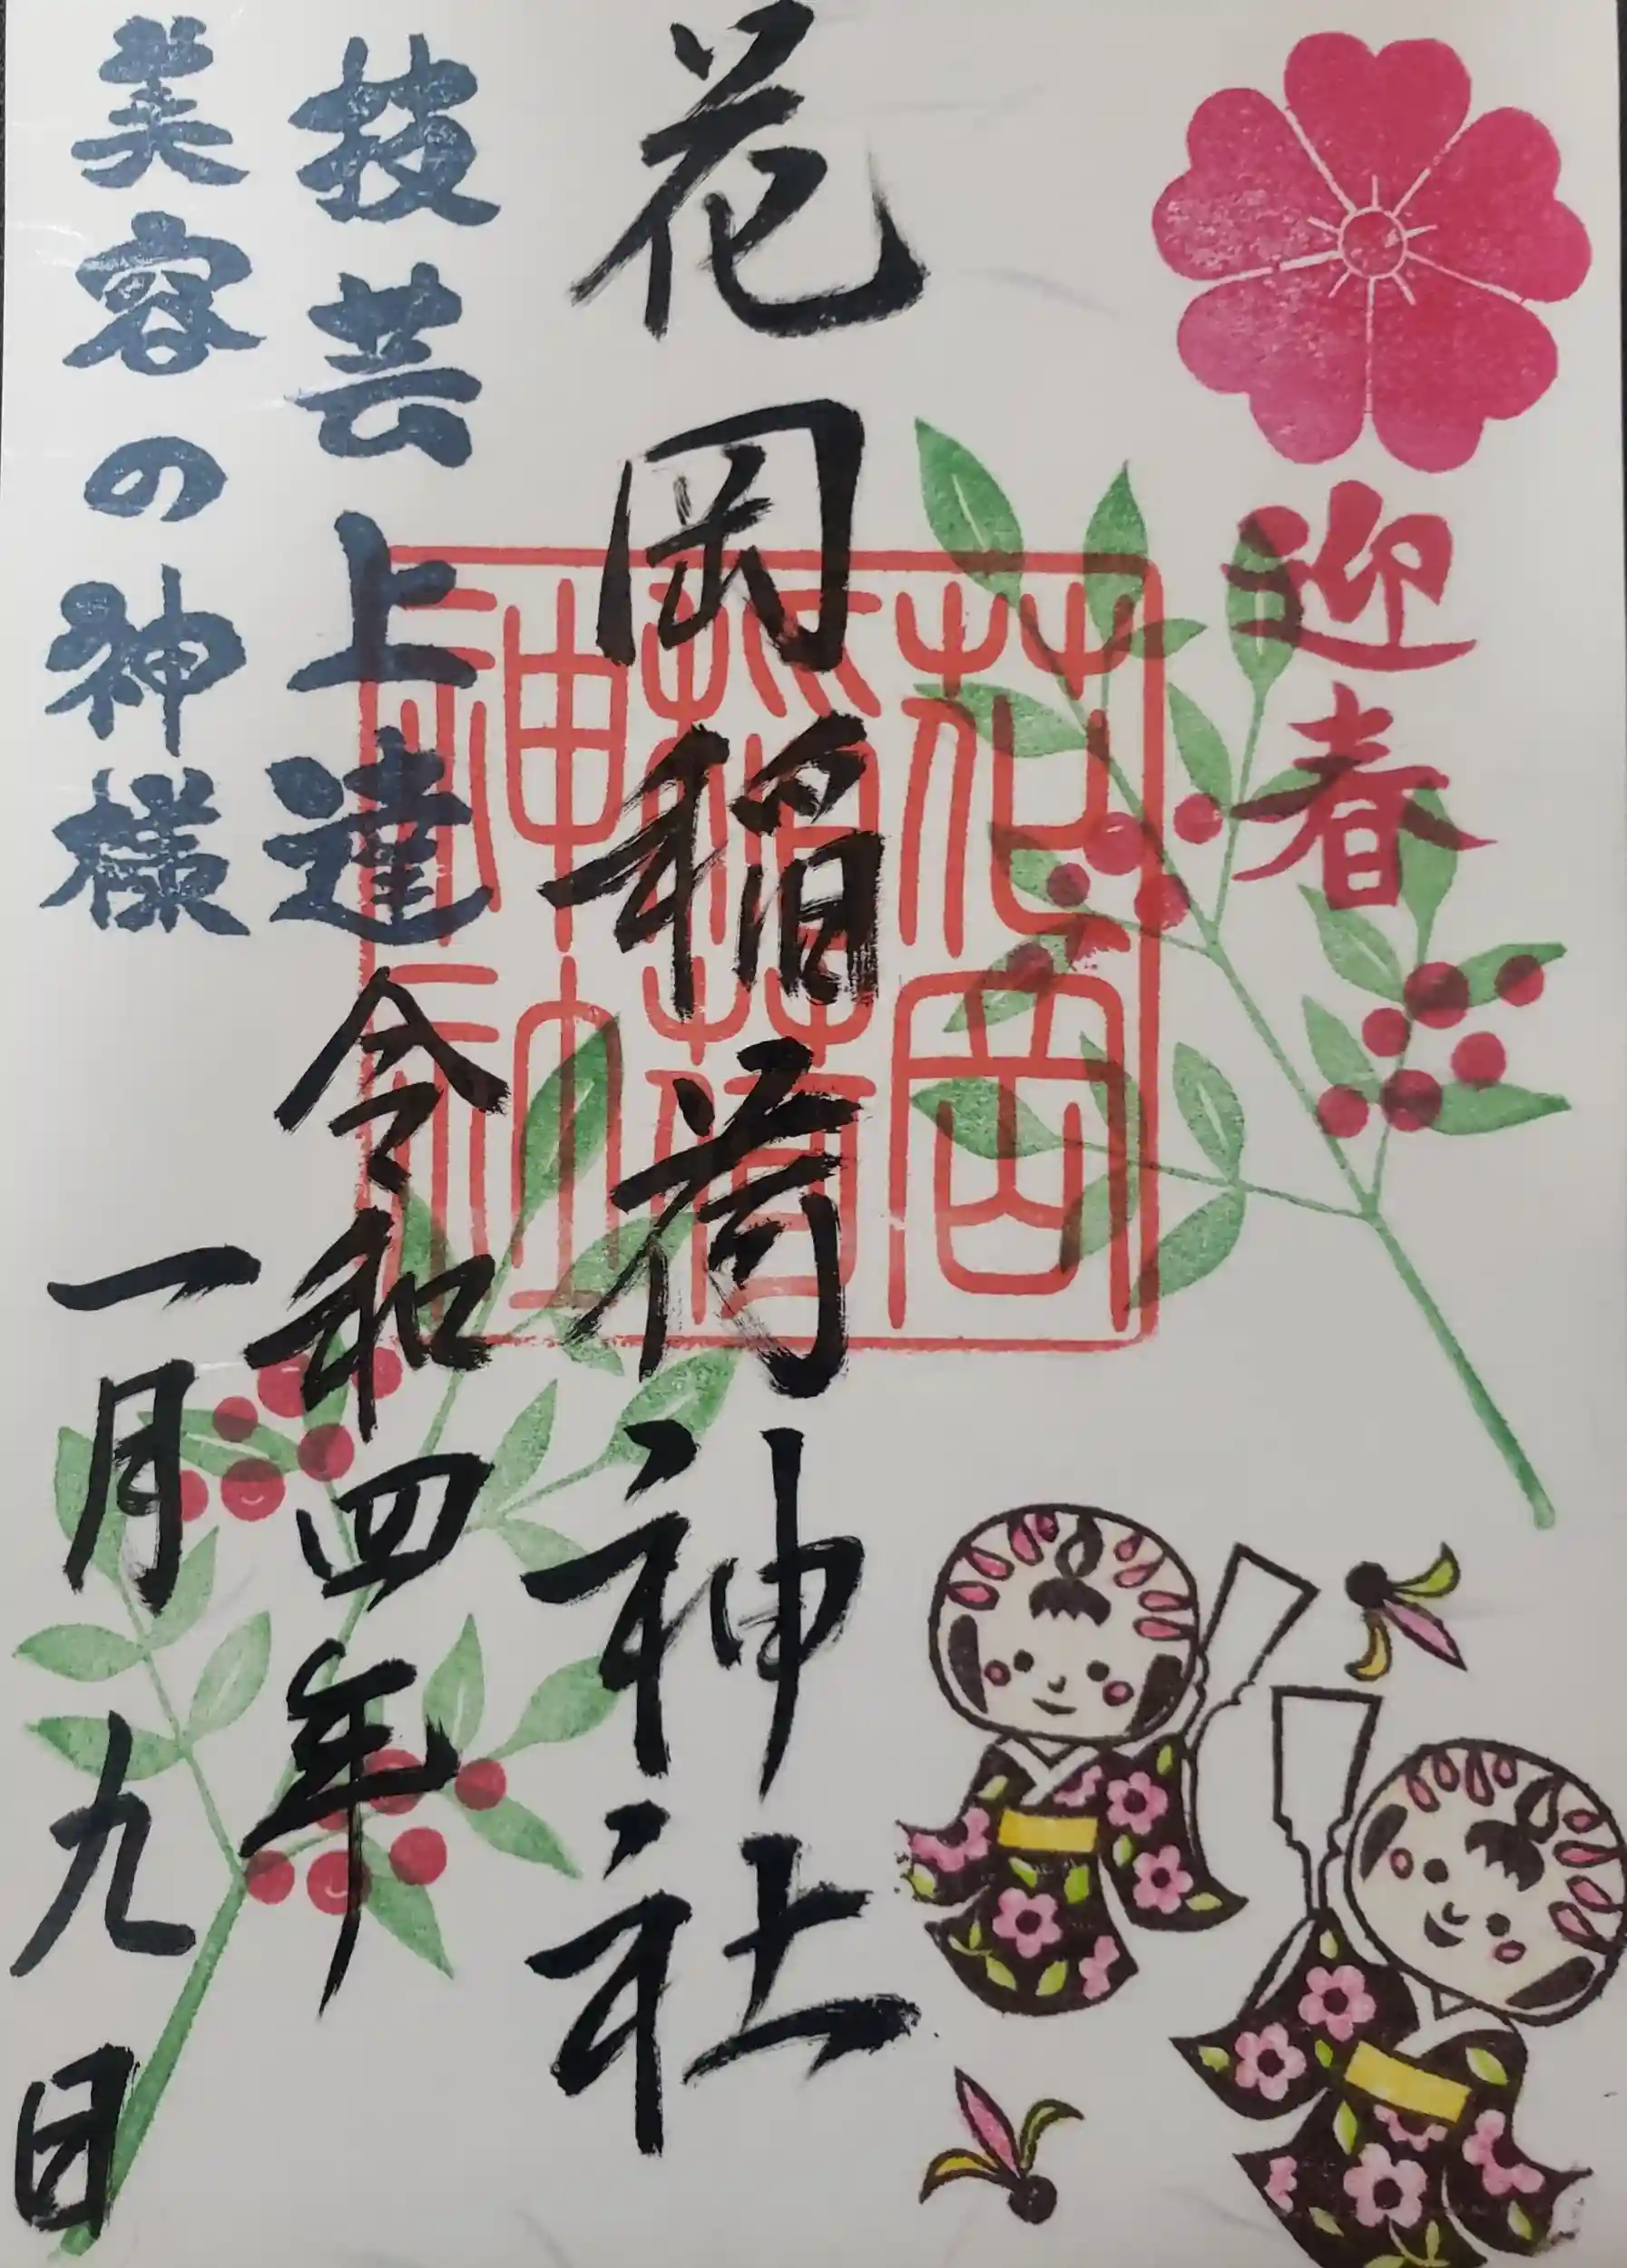 迎春
花岡稲荷神社
花岡
稲荷
神社
技芸上達
令和四年
美容の神様
一月九日